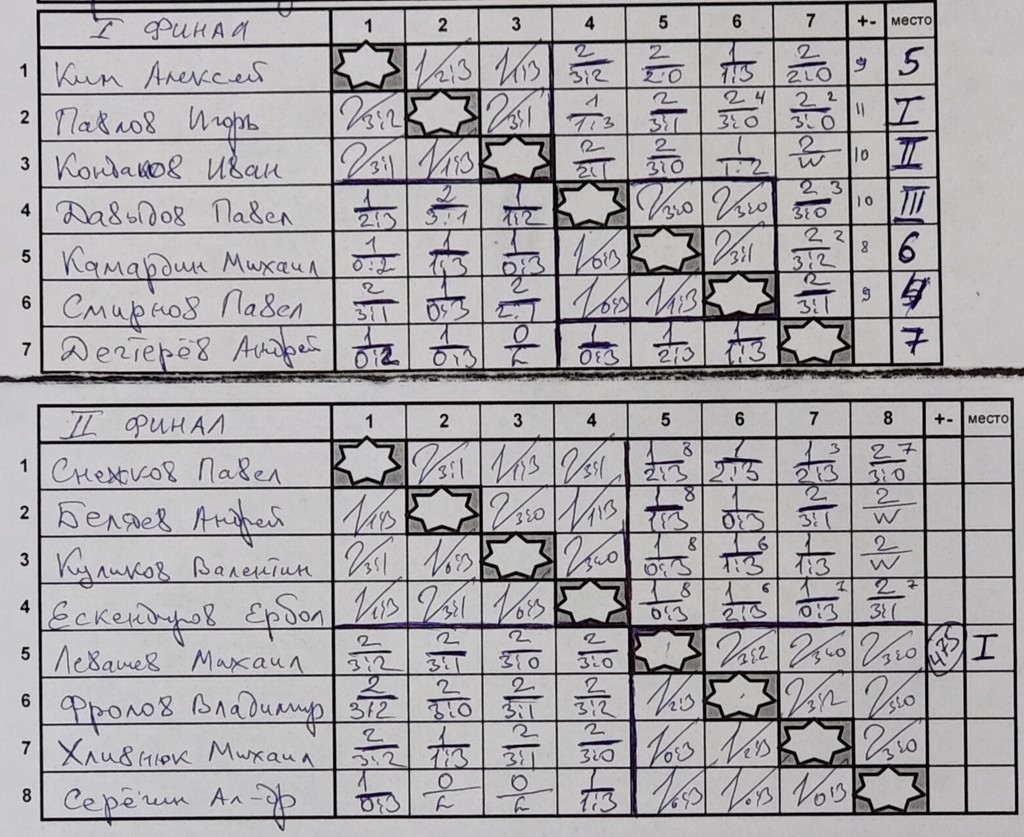 I ФИНАЛ 1 2 3 4 5 6 7 +- место
1 Ким Алексей 1/2:3 1/1:3 2/3:2 2/2:0 1/1:3 2/2:0 9 5
2 Павлов Игорь 2/3:2 2/3:1 1/1:3 2/3:1 2/3:0 4 2/3:0 2 11 I
3 Кондаков Иван 2/3:1 1/1:3 2/2:1 2/3:0 1/1:2 2/W 10 II
4 Давыдов Павел 1/2:3 2/3:1 1/1:2 2/3:0 2/3:0 2/3:0 3 10 III
5 Камардин Михаил 1/0:2 1/1:3 1/0:3 1/0:3 2/3:1 2/3:2 2 8 6
6 Смирнов Павел 2/3:1 1/0:3 2/2:1 1/0:3 1/1:3 2/3:1 9 4
7 Дегтерёв Андрей 1/0:2 1/0:3 0/L 1/0:3 1/2:3 1/1:3 7
II ФИНАЛ 1 2 3 4 5 6 7 8 +- место
1 Снежков Павел 2/3:1 1/1:3 2/3:1 1/2:3 8 1/2:3 1/2:3 3 2/3:0 7
2 Беляев Андрей 1/1:3 2/3:0 1/1:3 1/1:3 8 1/0:3 2/3:1 2/W
3 Куликов Валентин 2/3:1 1/0:3 2/3:0 1/0:3 8 1/1:3 6 1/1:3 2/W
4 Ескендиров Ербол 1/1:3 2/3:1 1/0:3 1/0:3 8 1/2:3 6 1/0:3 7 2/3:1 7
5 Левашев Михаил 2/3:2 2/3:1 2/3:0 2/3:0 2/3:2 2/3:0 2/3:0 475 I
6 Фролов Владимир 2/3:2 2/3:0 2/3:1 2/3:2 1/2:3 2/3:2 2/3:0
7 Хливнюк Михаил 2/3:2 1/1:3 2/3:1 2/3:0 1/0:3 1/2:3 2/3:0
8 Серёгин Ал-др 1/0:3 0/L 0/L 1/1:3 1/0:3 1/0:3 1/0:3